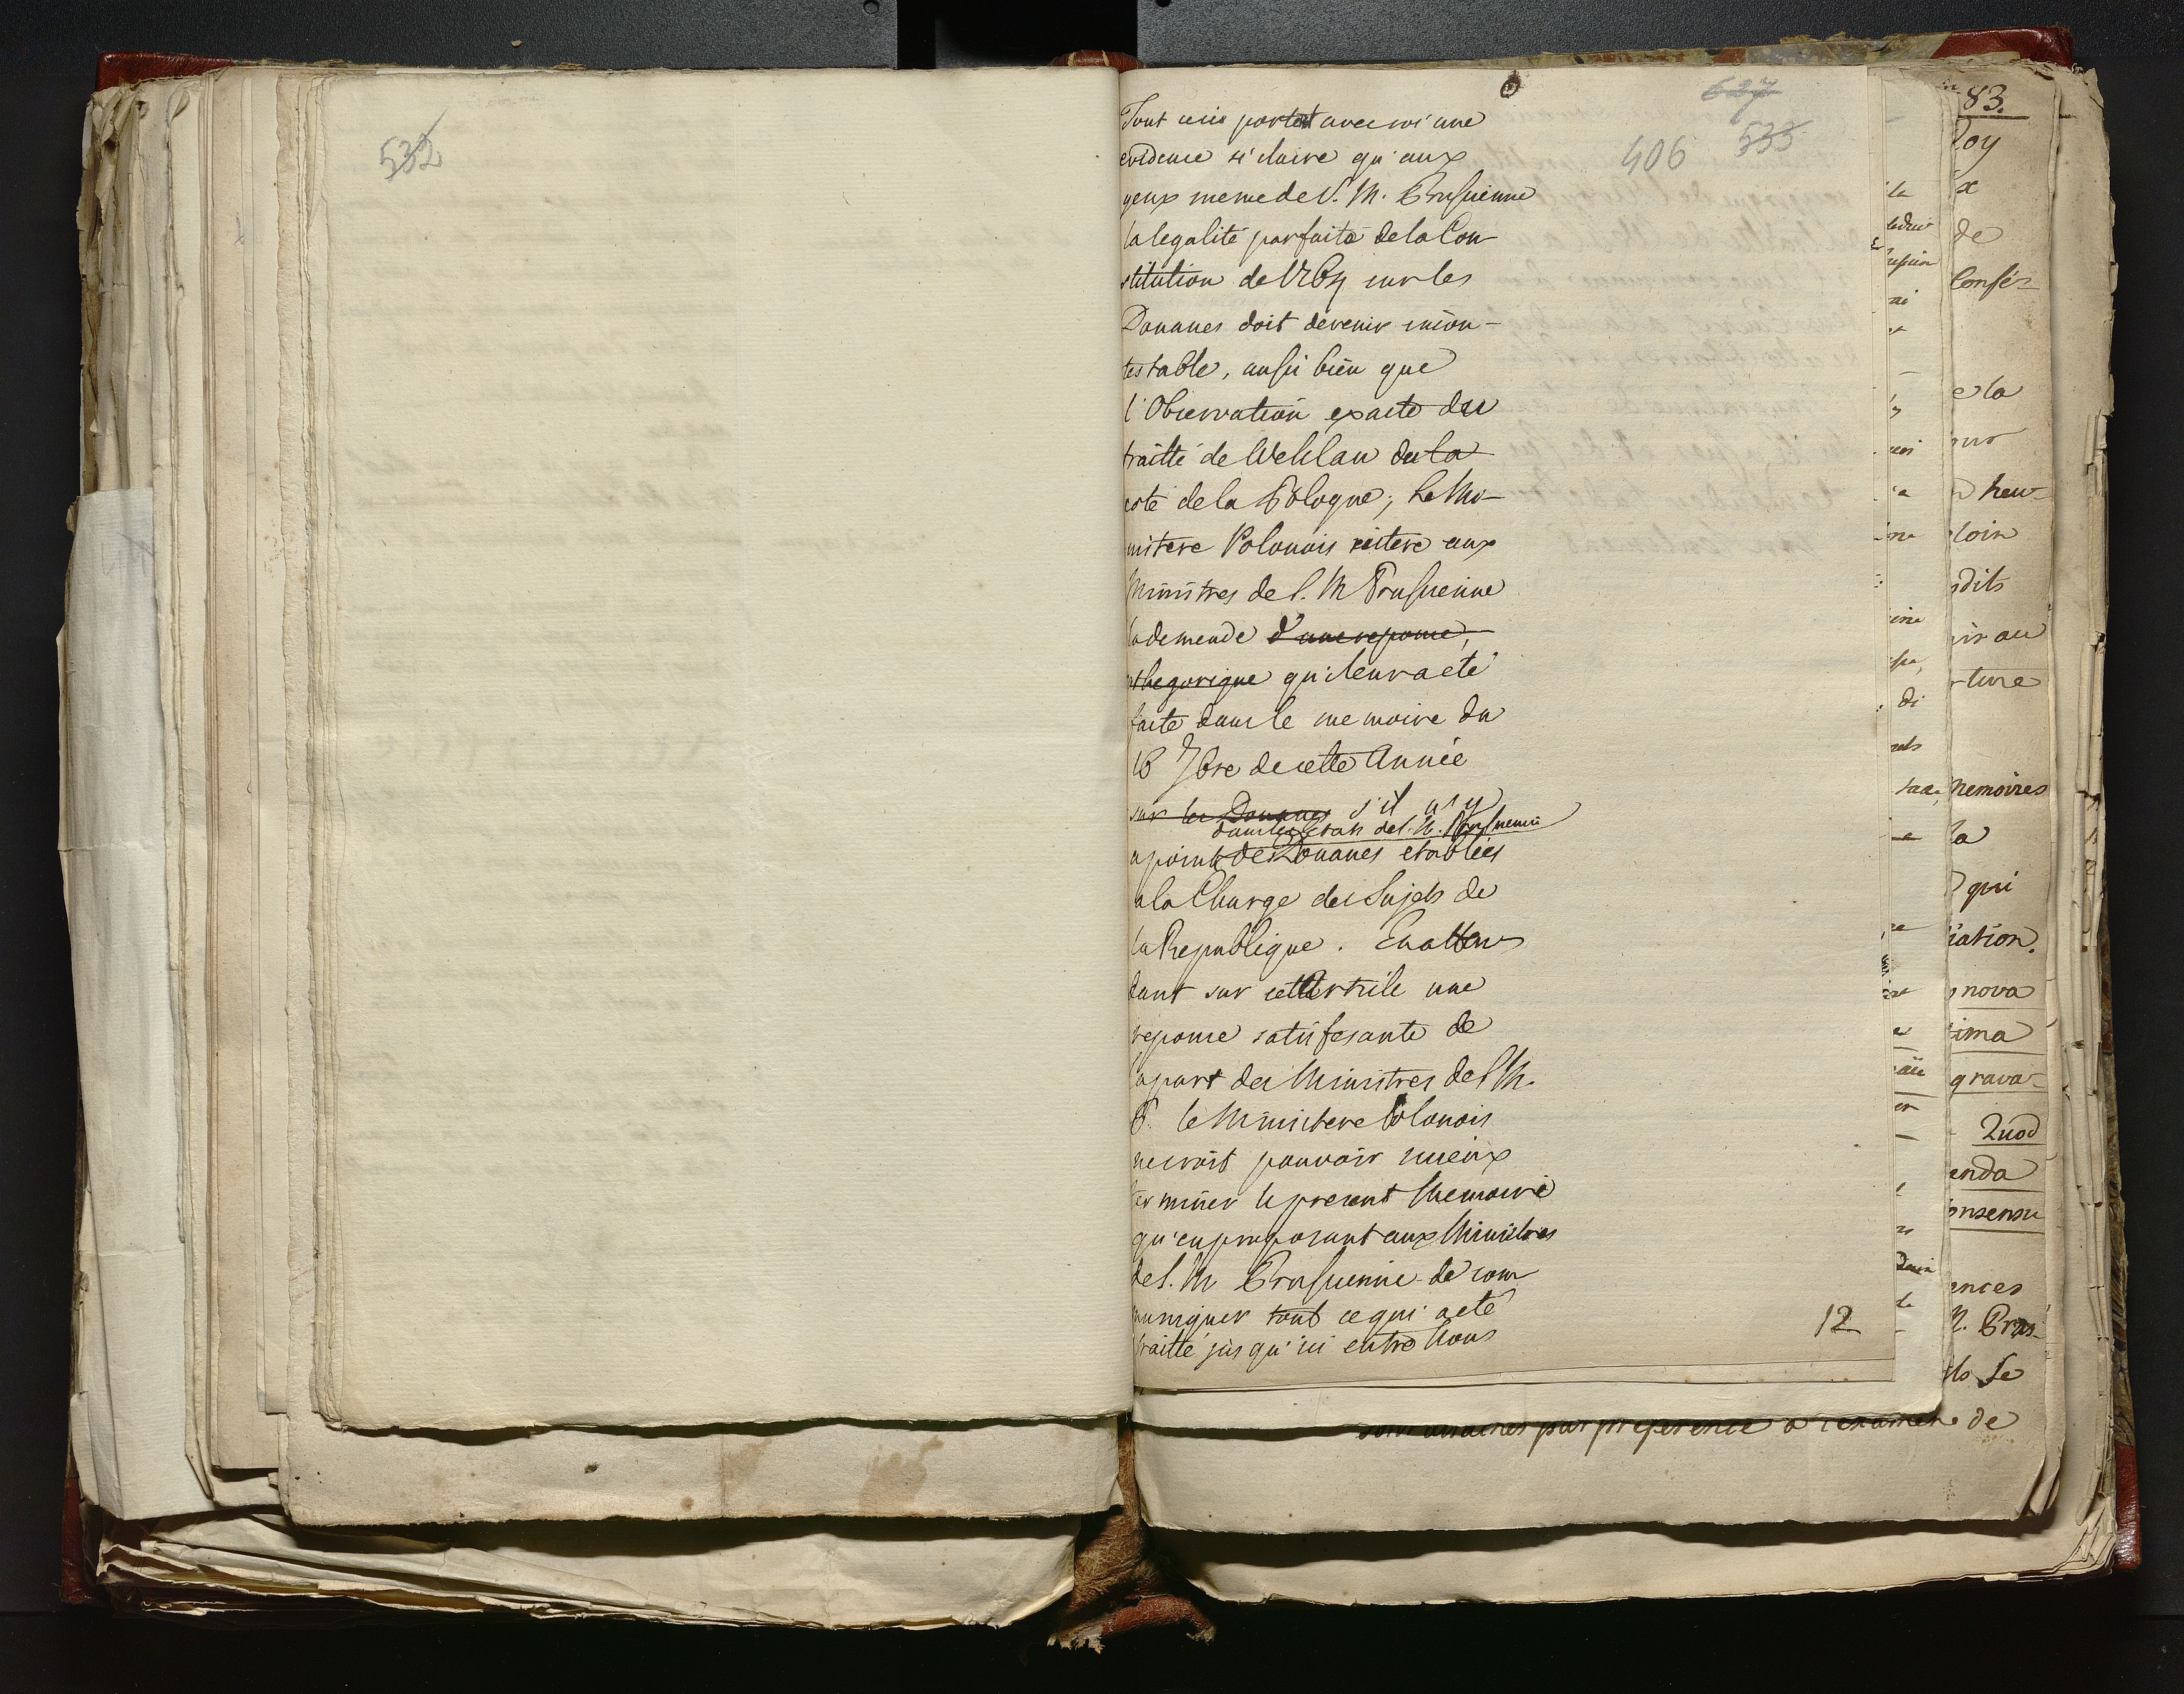 532
627
406 533
Tout ceci portant avec soi une
evidence si claire qu'aux
yeux meme de S. M. Prussienne
la legalité parfaite de la Con-
stitution de 1764 sur les
Douanes doit devenir incon-
testable, aussi bien que
l'Observation exacte du
traitté de Wehlau de la
coté de la Pologne; Le Mi-
nistere Polonois reitere aux
Ministres de S. M Prussienne
la demende d'une reponse,
cathegorique qu'ileur a eté
faite dans le memoire du
16 7bre de cette Année
sur les Douanes s'il n'y
dans les Etats de S. M. Prussienne
a point de Douanes etablies
a la Charge des Sujets de
la Republique. En atten
dant sur cet Article une
reponse satisfesante de
la part des Ministres de S M.
P. le Ministere Polonois
ne croit pouvoir mieux
terminer le present Memoire
qu'en proposant aux Ministres
de S. M Prussienne de com
muniquer tout ce qui a eté
traitté jusqu'ici entre Nous
12
83.
Roy
de
Consés-
e la
heu-
loin
dits
ir au
Memoires
la
qui
iation.
nova
ima
grava-
Quod
enda
onsensu
ences
M. Prus-
Se
par preference a l'examen de